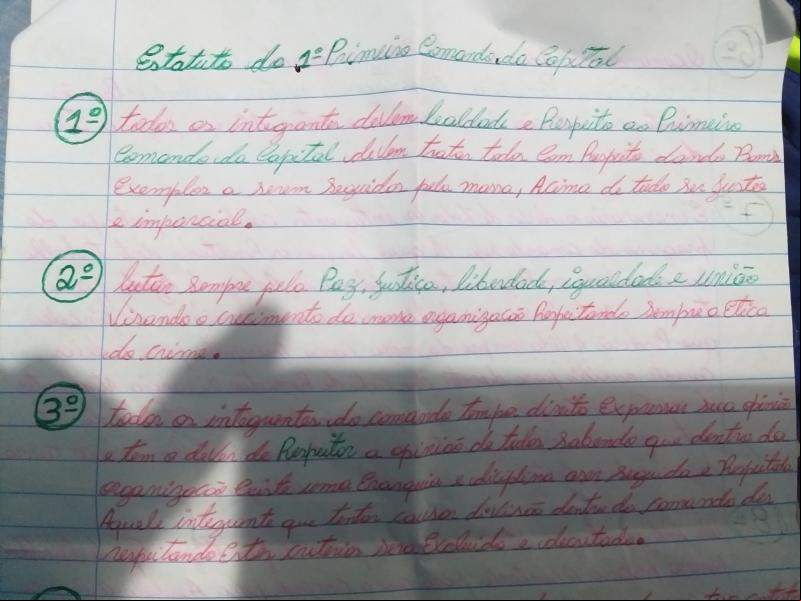 Estatuto do 1º Primeiro Comando da Capital
1º todos os integrantes devem lealdade e Respeito ao Primeiro
Comando da Capital devem tratar todos com Respeito dando Bons
Exemplos a serem seguidos pela massa, Acima de tudo ser Justos
e imparcial.
2º lutar sempre pela Paz, justiça, liberdade, igualdade e união
Visando o crecimento da nossa organização Respeitando Sempre a Etica
do crime.
3º todos os integrantes do comando tempo direito Expressar sua opinião
e tem o dever de Respeitar a opinião de todos sabendo que dentro da
organização Existe uma Erarquia e diciplina a ser seguida e Respeitada
Aquele integrante que tentar causar divisão dentro do comando des
respeitando Estes criterios sera Excluido e decretado.